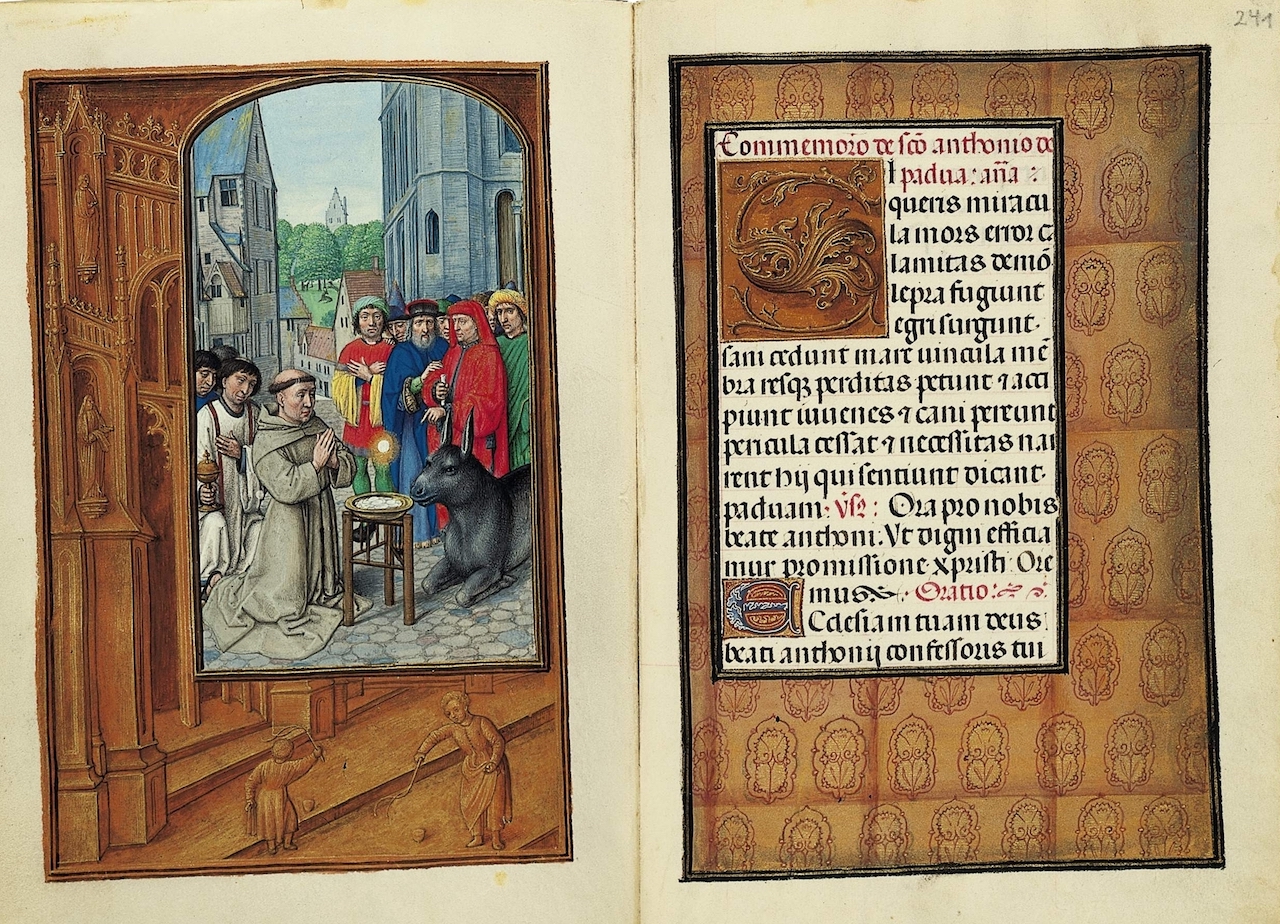 241
Com̄emoro de scō anthonio de
SI padua: an̄a:
queris miracu
la mors error ca
lamitas demō
lepra fugiunt
egri surgunt.
sani cedunt mare uincula mē
bra resqꝫ perditas petunt ⁊ acci
piunt iuuenes ⁊ cani pereunt
pericula cessāt ⁊ necessitas nar
rent hij qui sentiunt dicant
paduam: Ora pro nobis
beate anthoni. Vt digni efficia
mur promissione xpristi. Ore
mus. Oratio:
ECclesiam tuam deus
beati anthonij confessoris tui